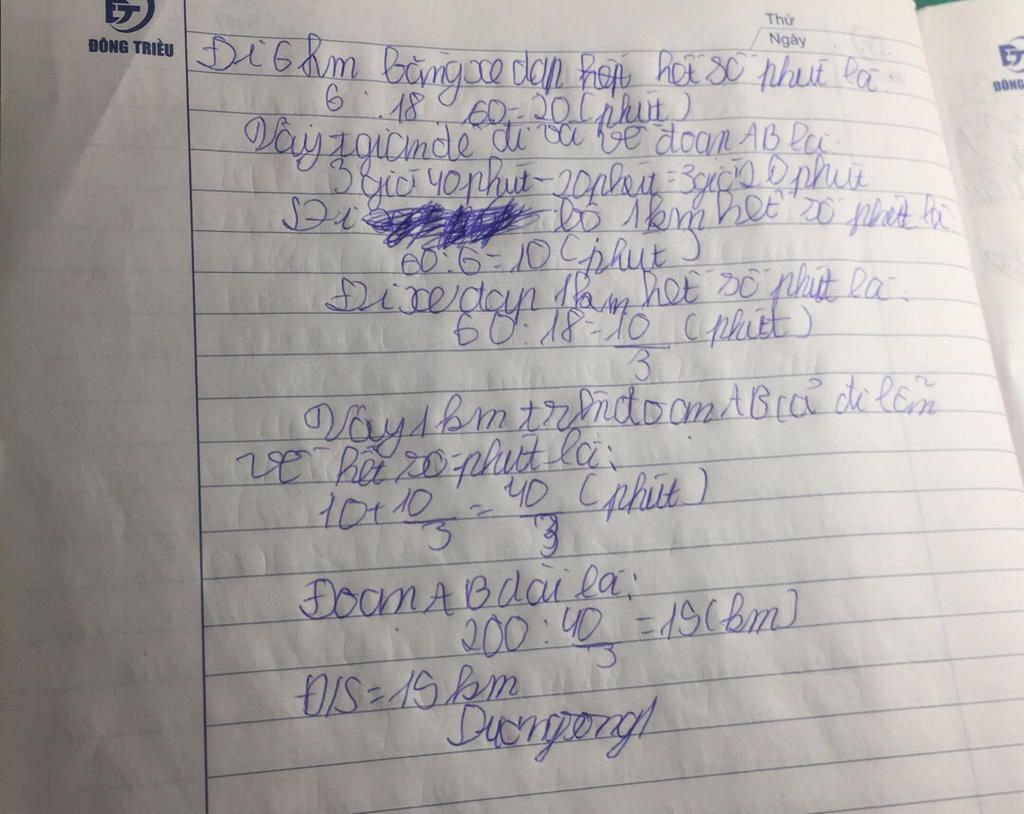 ĐÔNG TRIỀU
Thứ
Ngày
ĐÔNG
Đi 6 km bằng xe đạp hết số phút là:
6 : 18 60 = 20 (phút)
Vậy giờ để đi và về đoạn AB là:
3 giờ 40 phút - 20 phút = 3 giờ 20 phút
Đi bộ 1km hết số phút là:
60 : 6 = 10 (phút)
Đi xe đạp 1km hết số phút là:
60 : 18 = 10/3 (phút)
Vậy 1km trên đoạn AB cả đi lẫn
về hết số phút là:
10 + 10/3 = 40/3 (phút)
Đoạn AB dài là:
200 : 40/3 = 15 (km)
Đ/S = 15 km